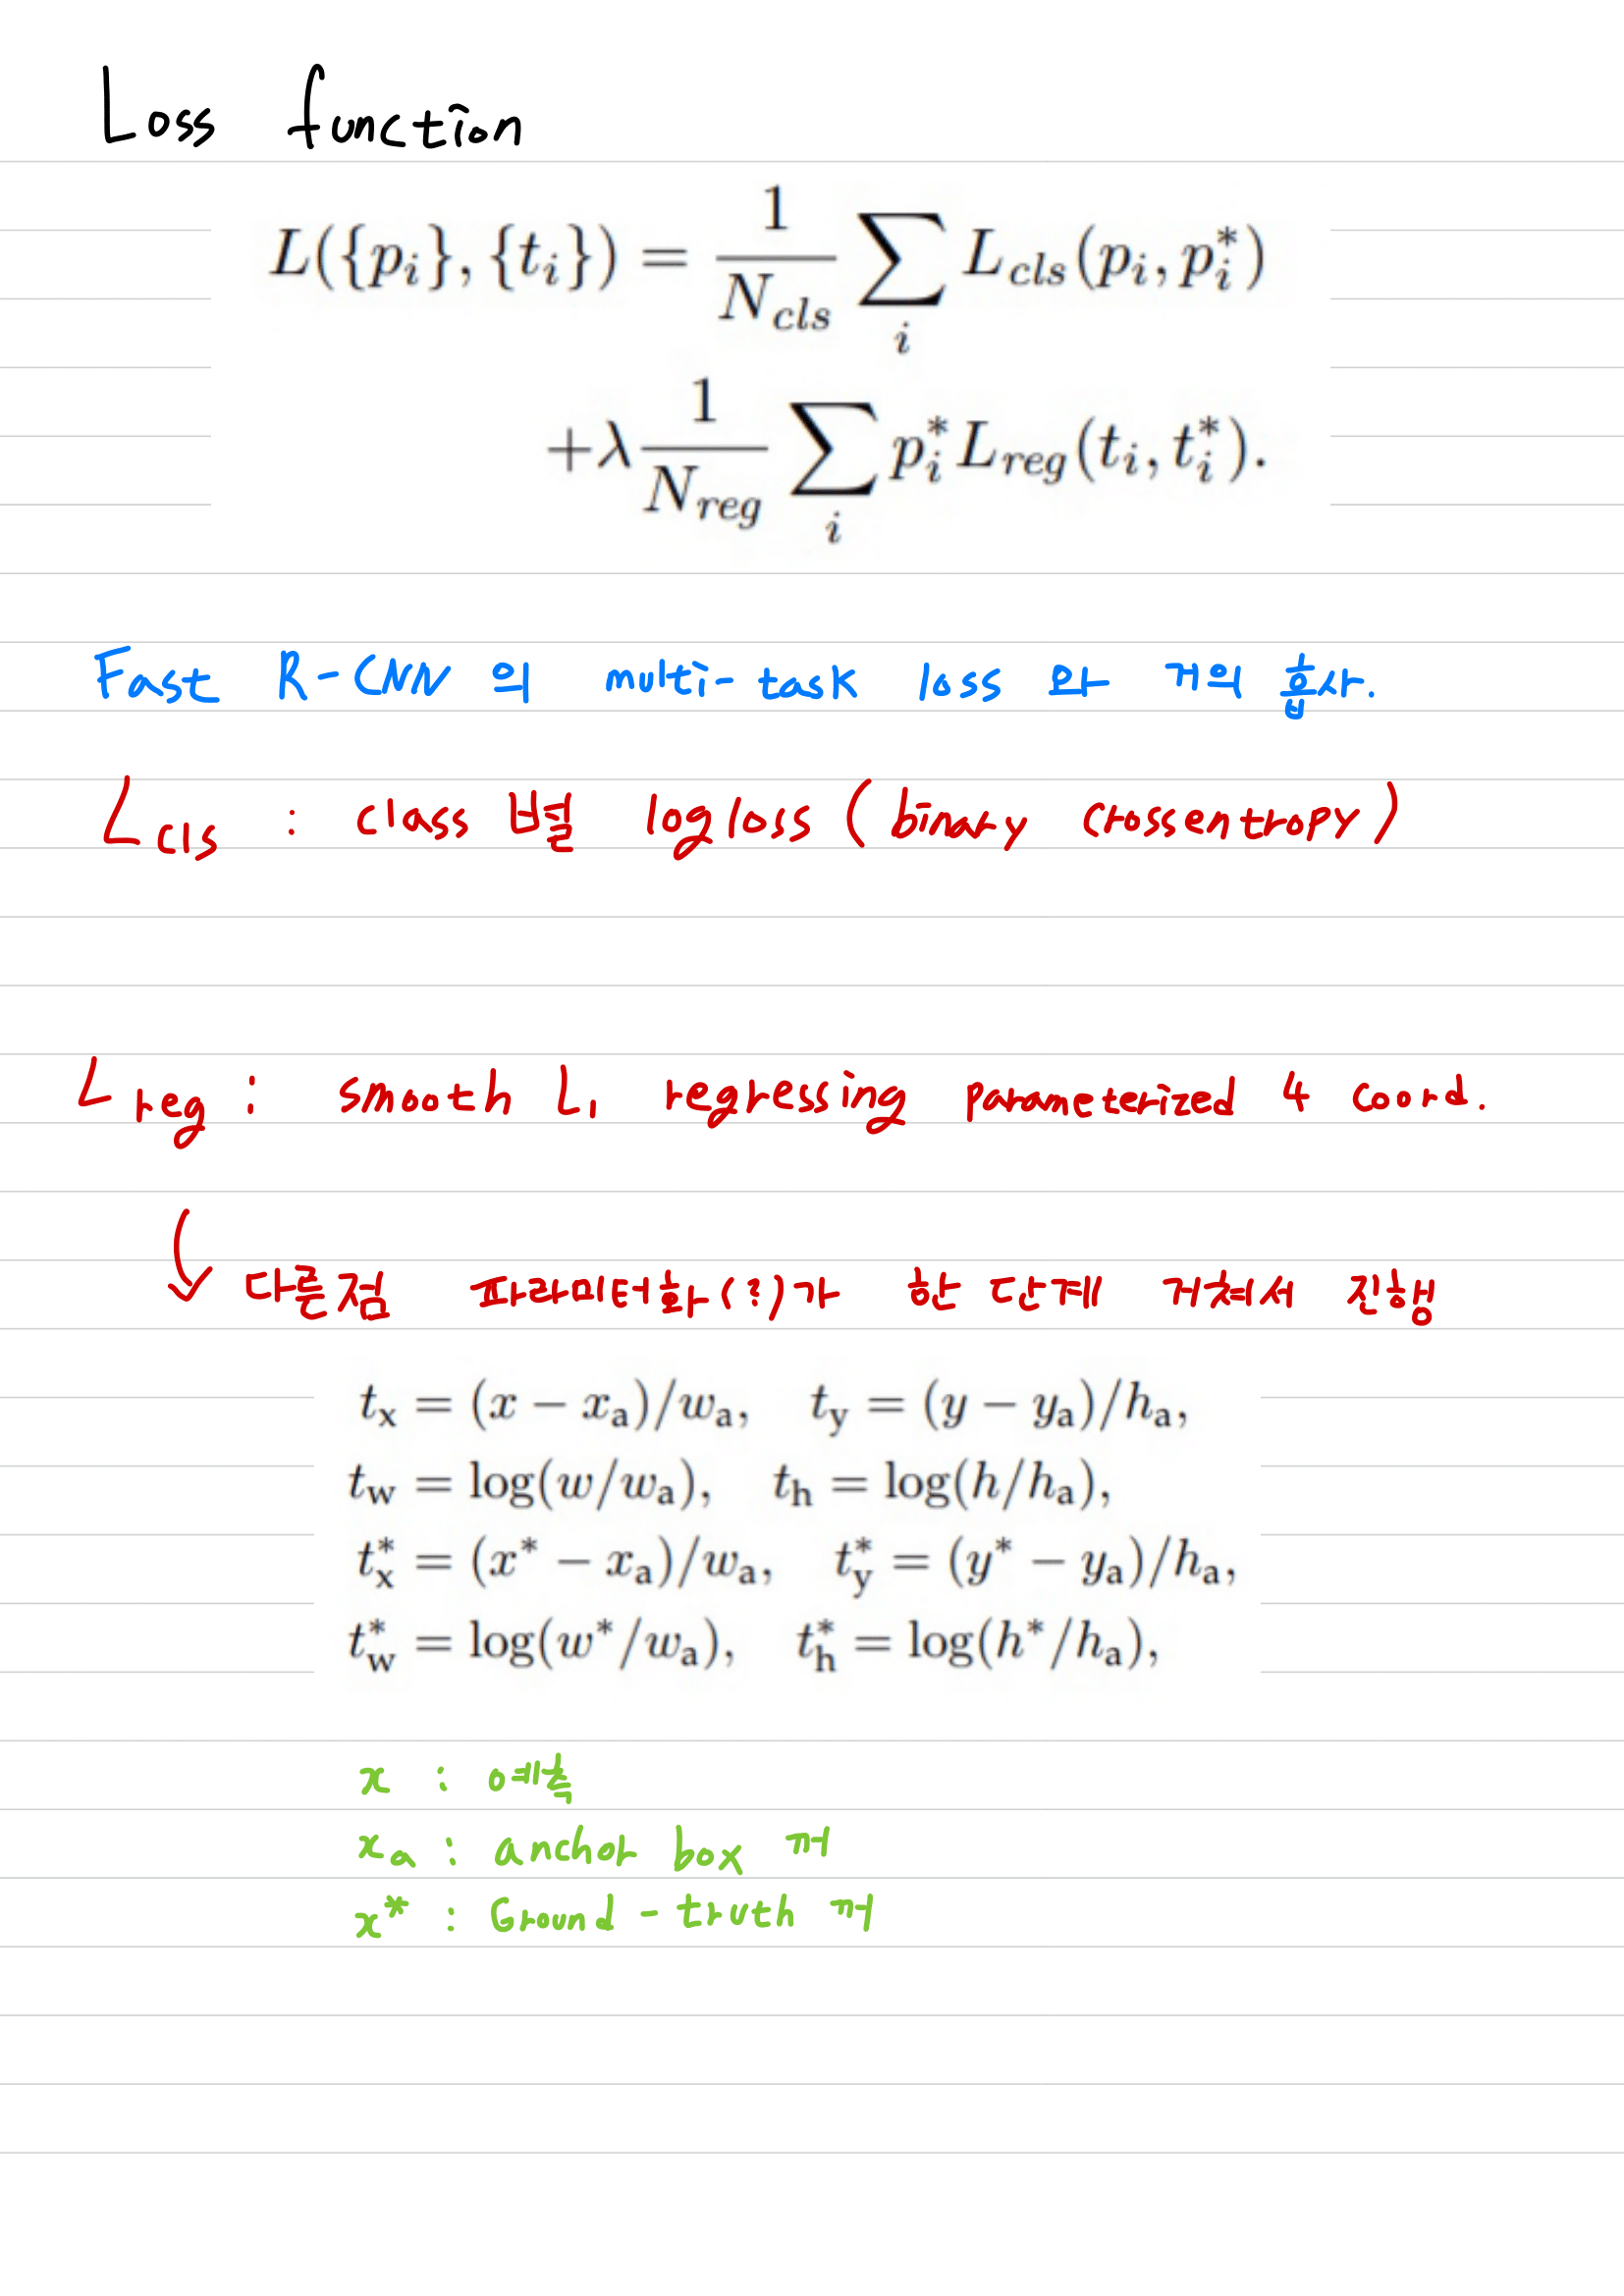 Loss function
L({p_i}, {t_i}) = \frac{1}{N_{cls}} \sum_i L_{cls}(p_i, p_i^*)
+\lambda \frac{1}{N_{reg}} \sum_i p_i^* L_{reg}(t_i, t_i^*).
Fast R-CNN 의 multi-task loss 와 거의 흡사.
L_{cls} : class 별 log loss (binary crossentropy)
L_{reg} : smooth L_1 regressing parameterized 4 coord.
다른점 파라미터화(?)가 한 단계 거쳐서 진행
t_x = (x − x_a)/w_a, t_y = (y − y_a)/h_a,
t_w = log(w/w_a), t_h = log(h/h_a),
t_x^* = (x^* − x_a)/w_a, t_y^* = (y^* − y_a)/h_a,
t_w^* = log(w^*/w_a), t_h^* = log(h^*/h_a),
x : 예측
x_a : anchor box 꺼
x^* : Ground-truth 꺼